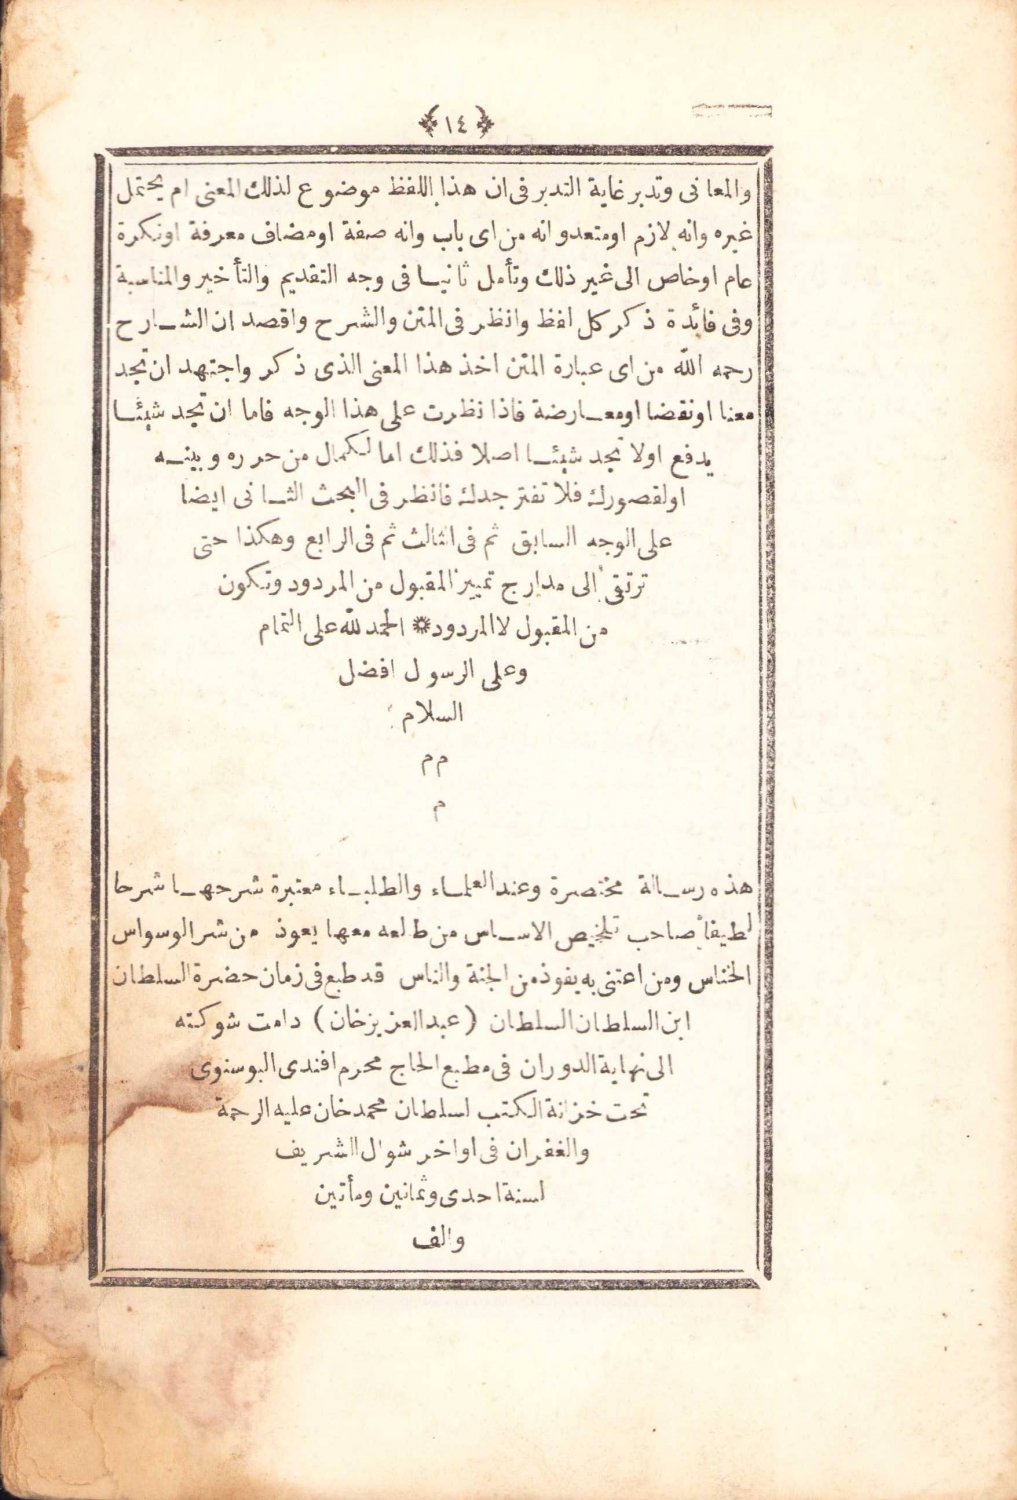 ١٤
والمعانى وتدبر غاية التدبر فى ان هذا اللفظ موضوع لذلك المعنى ام يحتمل
غيره وانه لازم اومتعدوانه من اى باب وانه صفة اومضاف معرفة اونكرة
عام اوخاص الى غير ذلك وتأمل ثانيا فى وجه التقديم والتأخير والمناسبة
وفى فائدة ذكر كل لفظ وانظر فى المتن والشرح واقصد ان الشارح
رحمه الله من اى عبارة المتن اخذ هذا المعنى الذى ذكر واجتهد ان تجد
معنا اونقضا اومعارضة فاذا نظرت على هذا الوجه فاما ان تجد شيئا
يدفع اولا تجد شيئا اصلا فذلك اما لكمال من حرره وبينه
اولقصورك فلا تفتر جدك فانظر فى البحث الثانى ايضا
على الوجه السابق ثم فى الثالث ثم فى الرابع وهكذا حتى
ترتقى الى مدارج تمييز المقبول من المردود وتكون
من المقبول لاالمردود ❋ الحمد لله على التمام
وعلى الرسول افضل
السلام
م م
م
هذه رسالة مختصرة وعند العلماء والطلباء معتبرة شرحها شرحا
لطيفا صاحب تلخيص الاساس من طالعه معها يعوذ من شر الوسواس
الخناس ومن اعتنى به يفوذ من الجنة والناس قد طبع فى زمان حضرة السلطان
ابن السلطان السلطان (عبد العزيز خان) دامت شوكته
الى نهاية الدوران فى مطبع الحاج محرم افندى البوسنوى
تحت خزانة الكتب لسلطان محمد خان عليه الرحمة
والغفران فى اواخر شوال الشريف
لسنة احدى وثمانين ومأتين
والف